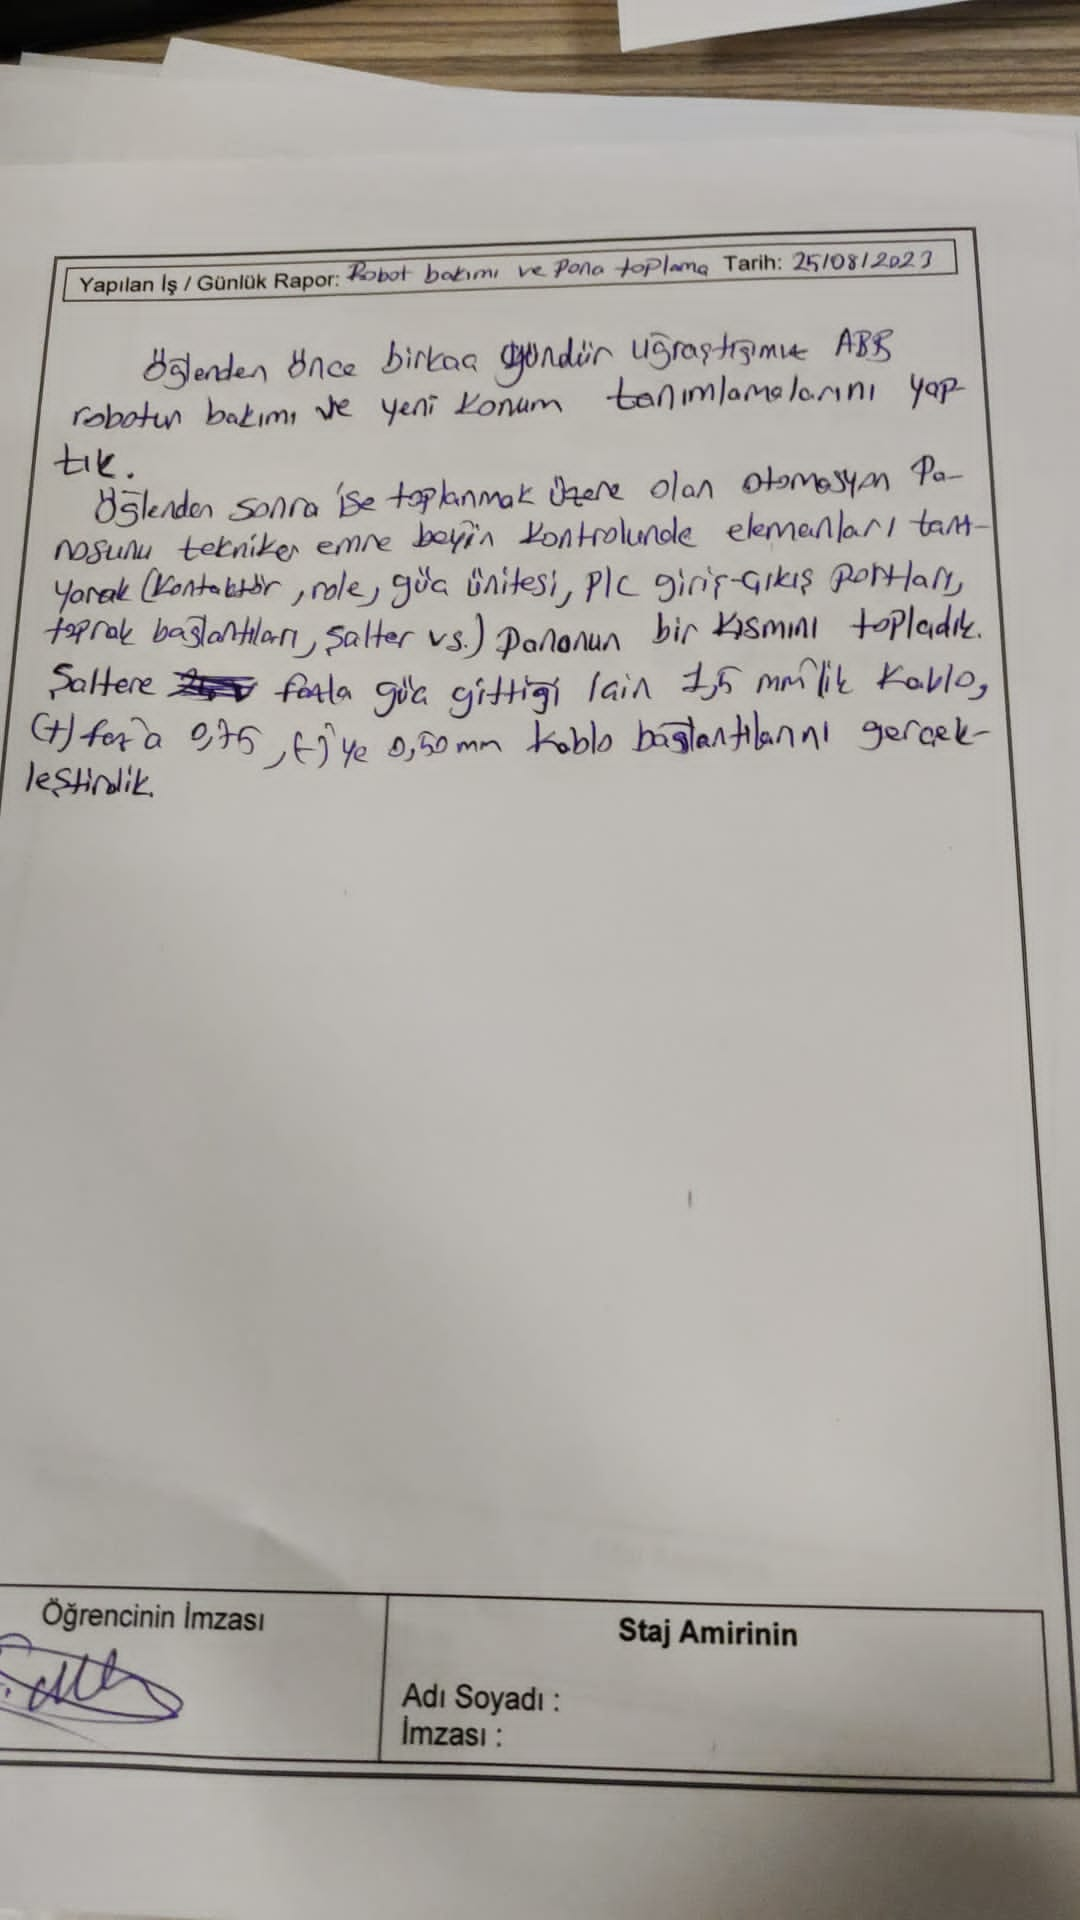 Yapılan İş / Günlük Rapor: Robot bakımı ve Pano toplama Tarih: 25/08/2023
Öğlenden önce birkaç gündür uğraştığımız ABB
robotun bakımı ve yeni konum tanımlamalarını yap-
tık.
Öğlenden sonra ise toplanmak üzere olan otomasyon Pa-
nosunu tekniker emre beyin kontrolunde elemanları tanı-
yarak (Kontaktör, role, güç ünitesi, PLC giriş-çıkış portları,
toprak bağlantıları, şalter vs.) panonun bir kısmını topladık.
Şaltere fazla güç gittiği için 1,5 mm'lik kablo,
(+) faz'a 0,75, (-)'ye 0,50 mm kablo bağlantılarını gerçek-
leştirdik.
Öğrencinin İmzası
Staj Amirinin
Adı Soyadı :
İmzası :